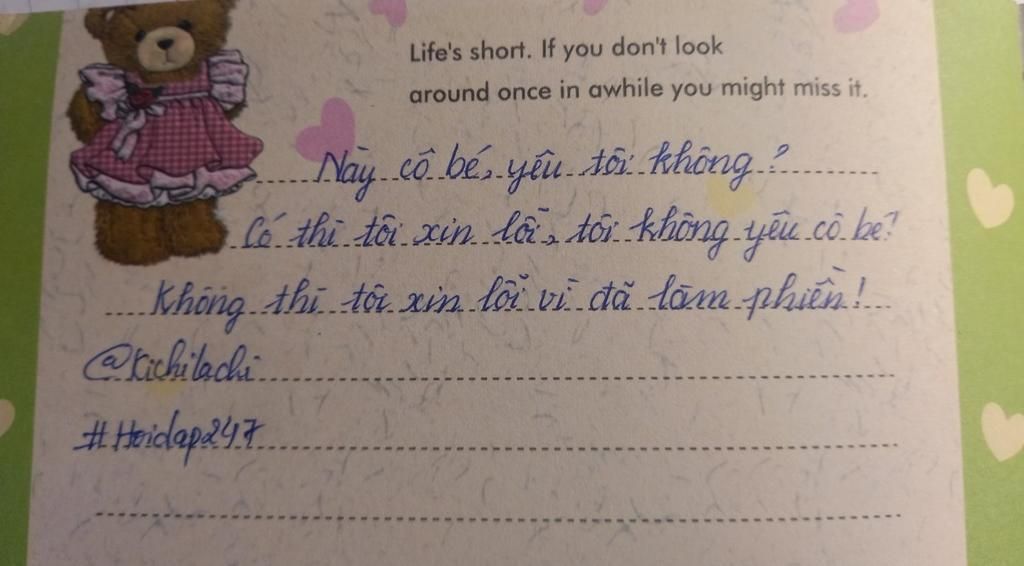 Life's short. If you don't look
around once in awhile you might miss it.
Này cô bé, yêu tôi không?
Có thì tôi xin lỗi, tôi không yêu cô bé!
Không thì tôi xin lỗi vì đã làm phiền!
@Kichilachi
#Hoidap247